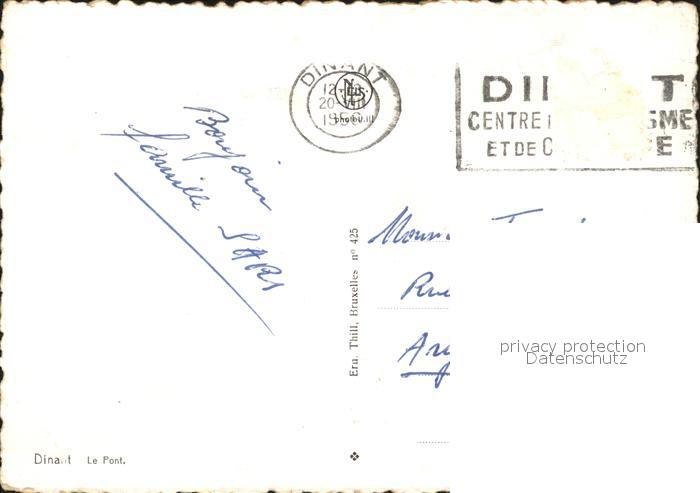 DINANT
12-
20-VIII
19
DI T
CENTRE SME
ET DE C E
Bonjour
famille SARI
Rue
Ern. Thill, Bruxelles nº 425
privacy protection
Datenschutz
Dinant Le Pont.